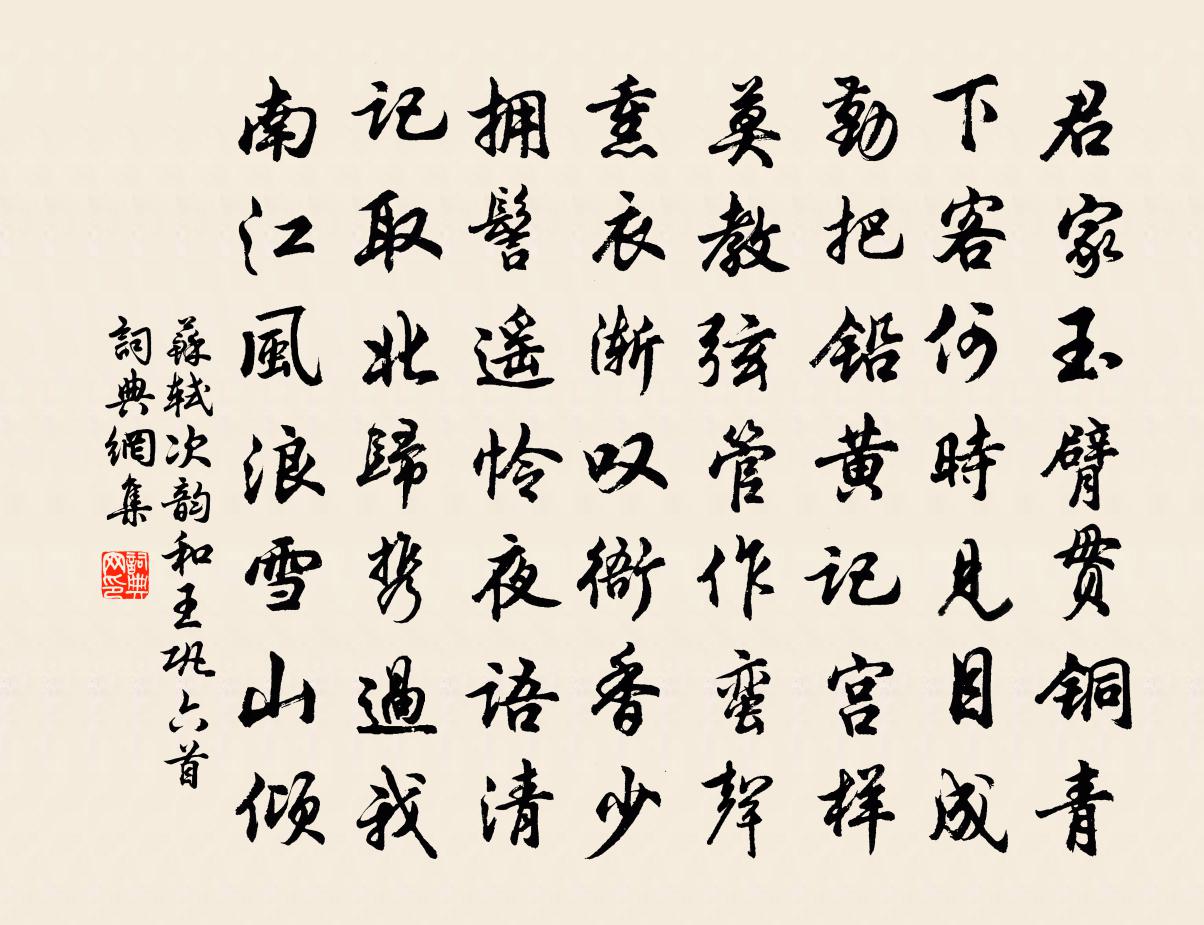 君家玉臂贯铜青
下客何時見目成
勤把铅黄記宫样
莫教弦管作蛮聲
熏衣渐叹衙香少
拥髻遥怜夜语清
记取北歸携過我
南江風浪雪山倾
蘇轼次韵和王巩六首
詞典網集
詞典网印